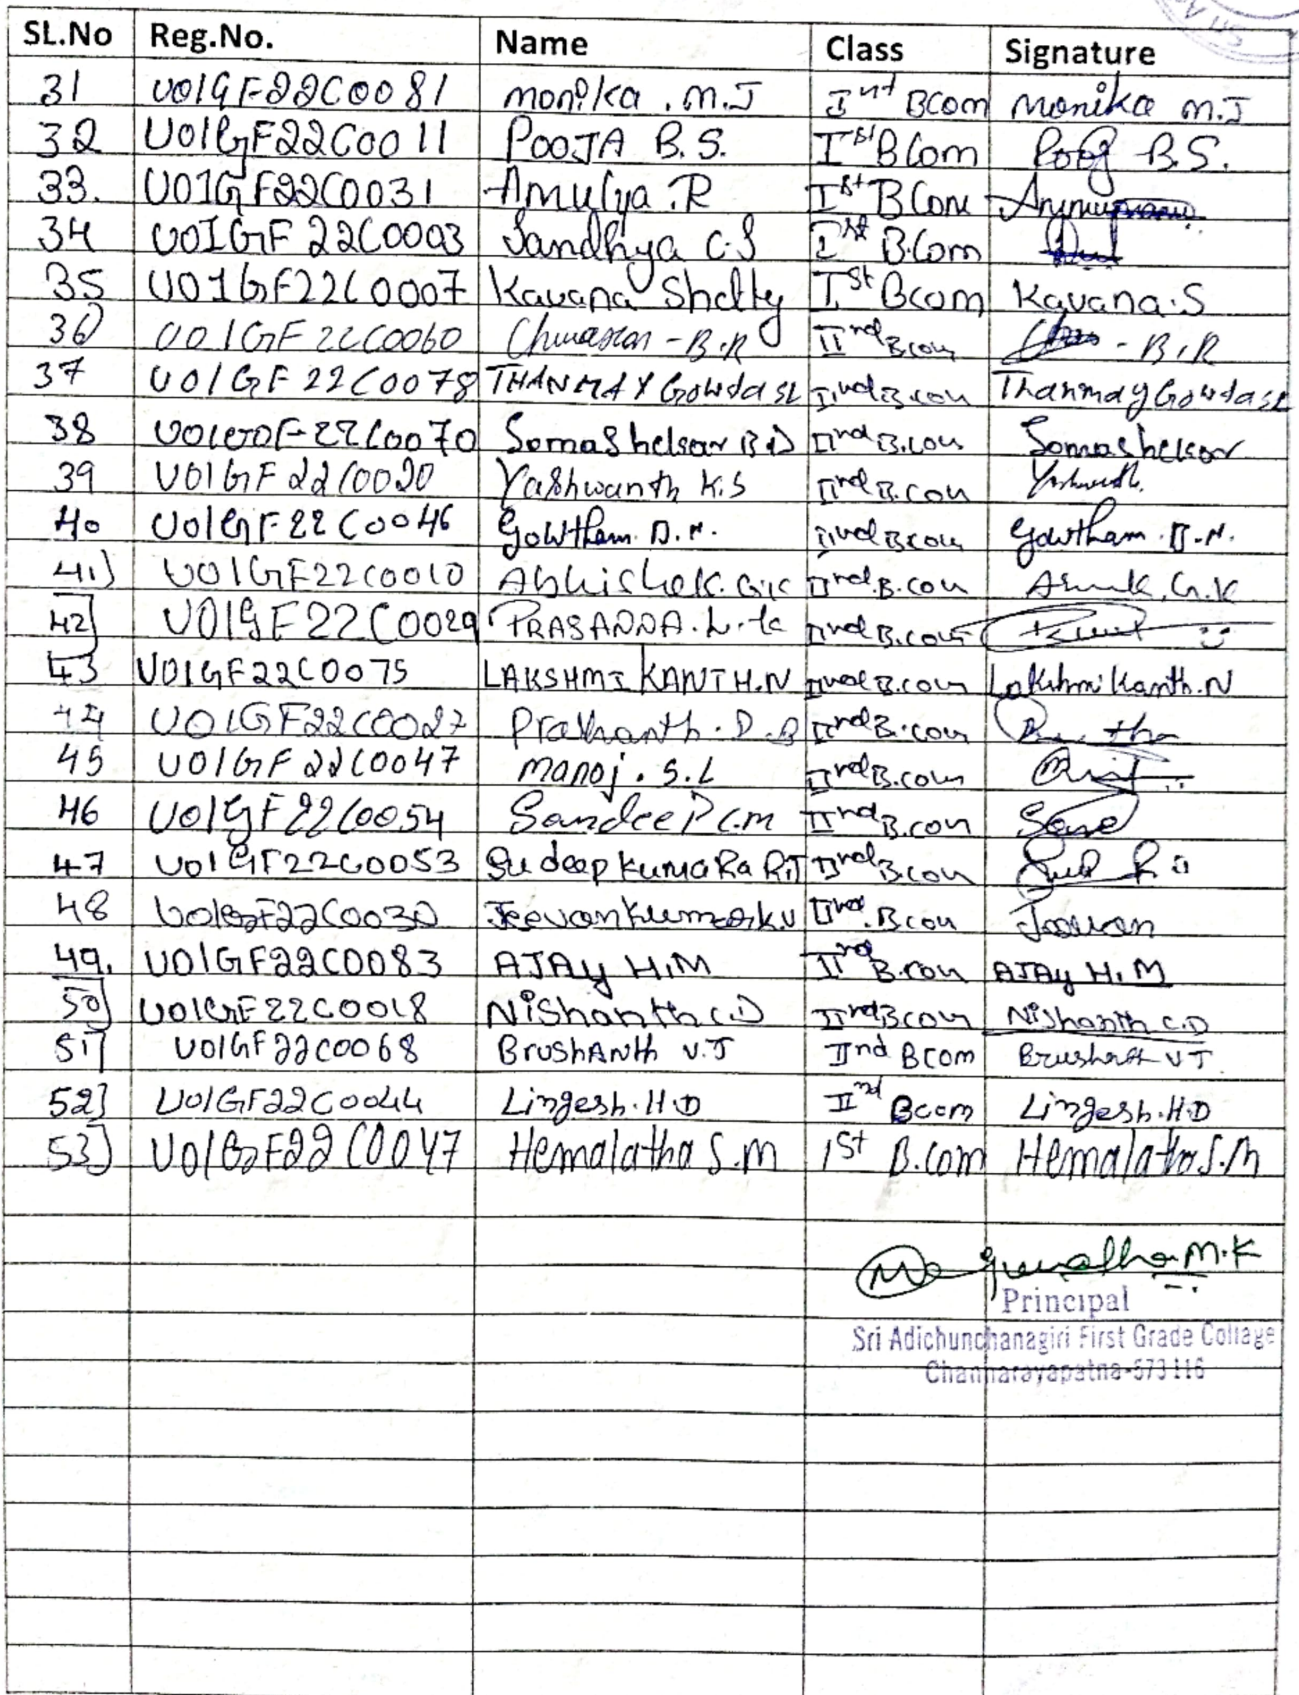 SL.No Reg.No. Name Class Signature
31 U01GF22C0081 Monika .M.J Ind BCom Monika M.J
32 U01GF22C0011 POOJA B.S. Ist BCom B.S.
33. U01GF22C0031 Amulya .R Ist BCom
34 U01GF22C0003 Sandhya C.S Ist B.Com
35 U01GF22C0007 Kavana Shetty Ist Bcom Kavana.S
36) U01GF22CC0060 -B.R IInd Bcom -B.R
37 U01GF22C0078 THANMAY Gowda SL IInd B.com Thanmay Gowda SL
38 22C0070 Somashekar B.D IInd B.com Somashekar
39 U01GF22C0020 Yashwanth K.S IInd B.com
40 U01GF22C0046 Gowtham. D.N. IInd Bcom Gowtham .D.N.
41.) U01GF22C0010 Abhishek. G.K IInd.B.com G.K
42] U01GF22C0029 PRASANNA. IInd B.com
43 U01GF22C0075 LAKSHMI KANTH.N IInd B.com Lakshmi Kanth.N
44 U01GF22C0027 Prashanth. D.B IInd B.com
45 U01GF22C0047 Manoj. S.L IInd B.com
46 U01GF22C0054 Sandeep C.M IInd B.com
47 U01GF22C0053 Sudeep KumaRa IInd B.com
48 U01GF22C0030 Jeevan IInd.Bcom Jeevan
49. U01GF22C0083 AJAY H.M IInd B.com AJAy H.M
50] U01GF22C0018 Nishanth C.D IInd Bcom Nishanth C.D
51] U01GF22C0068 BrushAnth V.J IInd Bcom V J
52] U01GF22C0044 Lingesh.H.D IInd Bcom Lingesh.H.D
53) U01GF22C0047 Hemalatha S.M 1St B.com Hemalatha S.M
Manjunatha M.K
Principal
Sri Adichunchanagiri First Grade Collage
Channarayapatna-573116